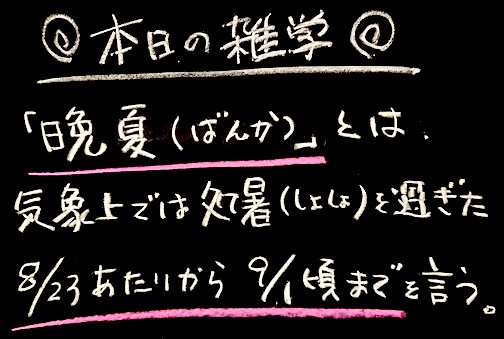 ◎ 本日の雑学 ◎
「晩夏(ばんか)」とは、
気象上では処暑(しょしょ)を過ぎた
8/23あたりから 9/1頃までを言う。